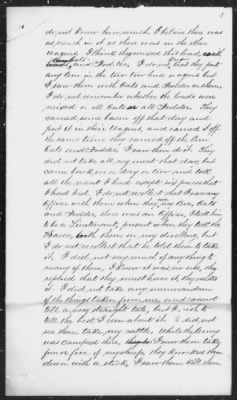 do not know how much. I believe there was
as much in it as there was in the other
wagon. I think they mixed this load, 
and Fodder. I do not that they put
any Corn in the two two horse wagons but
I saw them with Oats and Fodder on them.
I do not remember whether the loads were
mixed or all Oats or all Fodder. They
carried some bacon off that day and
put it in their wagons, and carried it off
the same time they carried off the Corn
Oats and Fodder. I saw them do it. They
did not take all my meat that day but
came back in a day or two and took
all the meat I had except six pieces that
I had hid. I do not recollect that I saw any
Officer with them when they my Corn, Oats
and Fodder, there was an Officer, I took him
to be a Lieutenant, present when they took the
Bacon, both times as my recollect, but
I do not recollect that he told them to take
it. I did not say much of anything to
many of them, I knew it was no use, they
replied that they must have it, they
it. I did not take any memorandum
of the things taken from me and cannot
tell a very straight tale, but I wish to
tell the best I can about it. I did not
see them take my cattle. While the Army
was camped there, I saw them take
four or five of my sheep, they knocked them
down with a stick, I saw them kill them